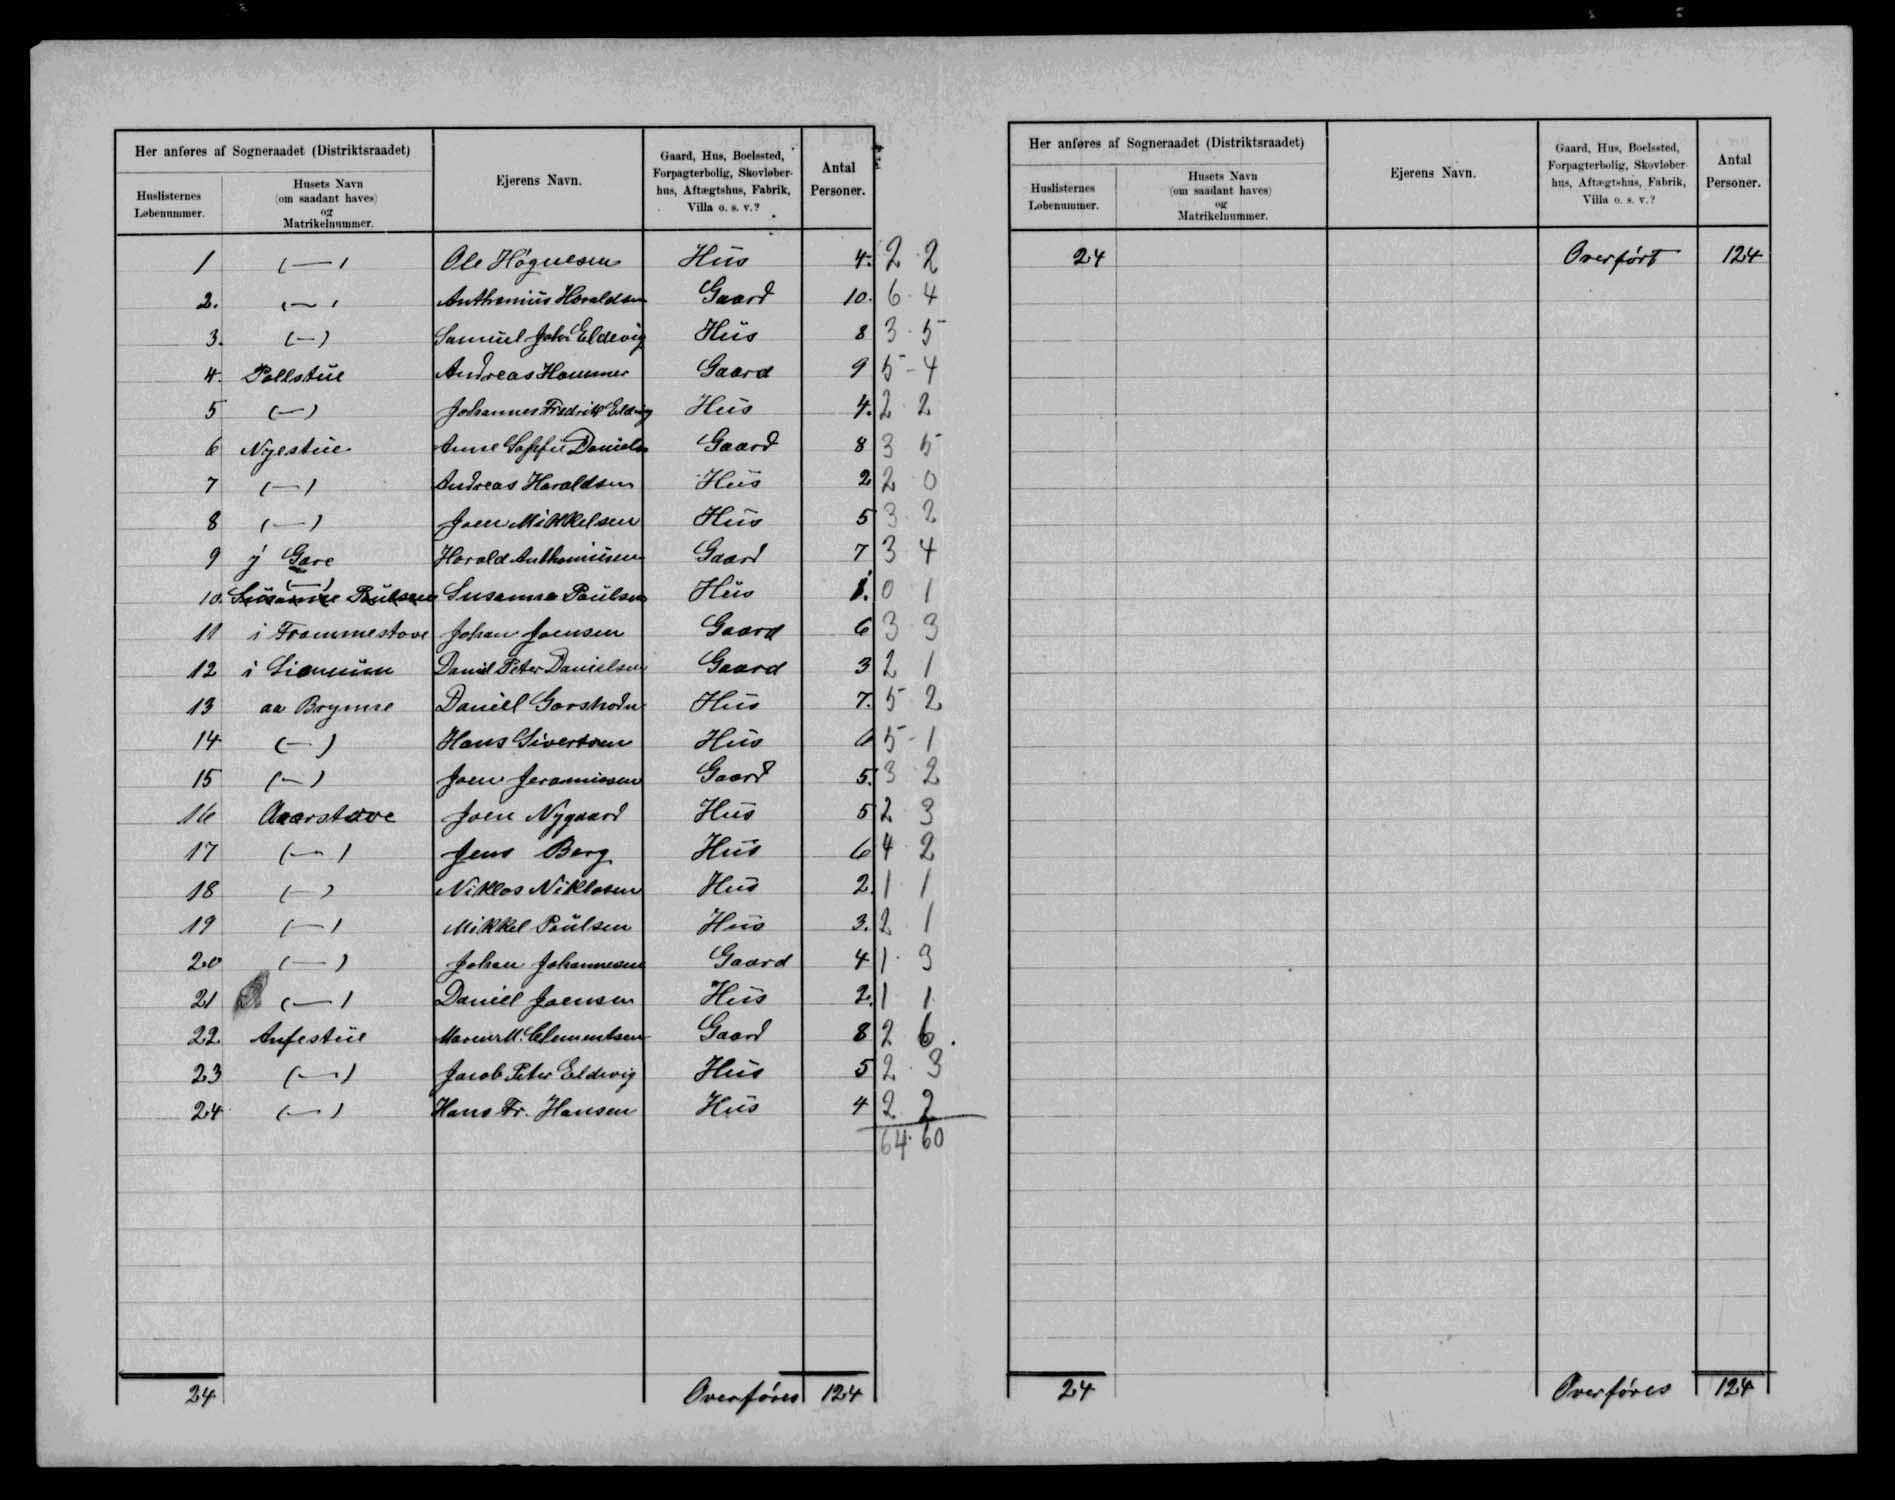 Her anføres af Sogneraadet (Distriktsraadet)
Huslisternes Løbenummer.
Husets Navn (om saadant haves) og Matrikelnummer.
Ejerens Navn.
Gaard, Hus, Boelssted, Forpagterbolig, Skovløberhus, Aftægtshus, Fabrik, Villa o. s. v.?
Antal Personer.
1 (—) Ole Høgnesen Hus 4. 2 2
2. (—) Anthonius Haraldsen Gaard 10. 6 4
3. (—) Samuel Jakob Eldevig Hus 8 3 5
4. Pallstue Andreas Hammer Gaard 9 5 - 4
5 (—) Johannes Fredrik Eldevig Hus 4. 2 2
6 Nyestue Anne Daniels Gaard 8 3 5
7 (—) Andreas Haraldsen Hus 2 2 0
8 (—) Joen Mikkelsen Hus 5 3 2
9 Gare Harald Anthoniusen Gaard 7 3 4
10. (—) Susanna Poulsen Susanna Poulsen Hus 1. 0 1
11 i Frammestove Johan Joensen Gaard 6 3 3
12 i Daniel Peter Danielsen Gaard 3 2 1
13 aa Daniel Hus 7. 5 2
14 (—) Hans Sivertsen Hus 6 5 - 1
15 (—) Joen Gaard 5. 3 2
16 Joen Nygaard Hus 5 2 3
17 (—) Jens Berg Hus 6 4 2
18 (—) Niklas Niklasen Hus 2 1 1
19 (—) Mikkel Poulsen Hus 3. 2 1
20 (—) Johan Johannesen Gaard 4 1 3
21 (—) Daniel Joensen Hus 2. 1 1
22 Maren M. Clementsen Gaard 8 2 6.
23 (—) Jacob Peter Eldevig Hus 5 2 3
24 (—) Hans Fr. Hansen Hus 4 2 2
64 60
24 Overføres 124
Her anføres af Sogneraadet (Distriktsraadet)
Huslisternes Løbenummer.
Husets Navn (om saadant haves) og Matrikelnummer.
Ejerens Navn.
Gaard, Hus, Boelssted, Forpagterbolig, Skovløberhus, Aftægtshus, Fabrik, Villa o. s. v.?
Antal Personer.
24 Overført 124
24 Overføres 124